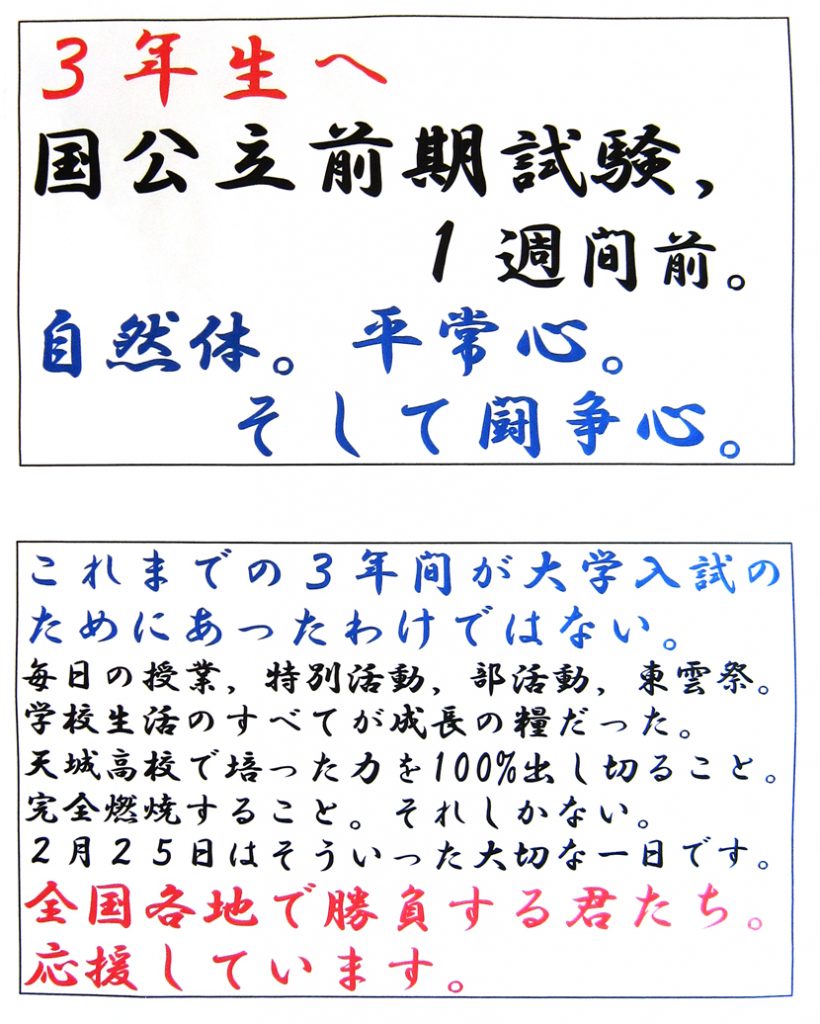 3年生へ
国公立前期試験，
1週間前。
自然体。平常心。
そして闘争心。
これまでの3年間が大学入試の
ためにあったわけではない。
毎日の授業，特別活動，部活動，東雲祭。
学校生活のすべてが成長の糧だった。
天城高校で培った力を100%出し切ること。
完全燃焼すること。それしかない。
2月25日はそういった大切な一日です。
全国各地で勝負する君たち。
応援しています。